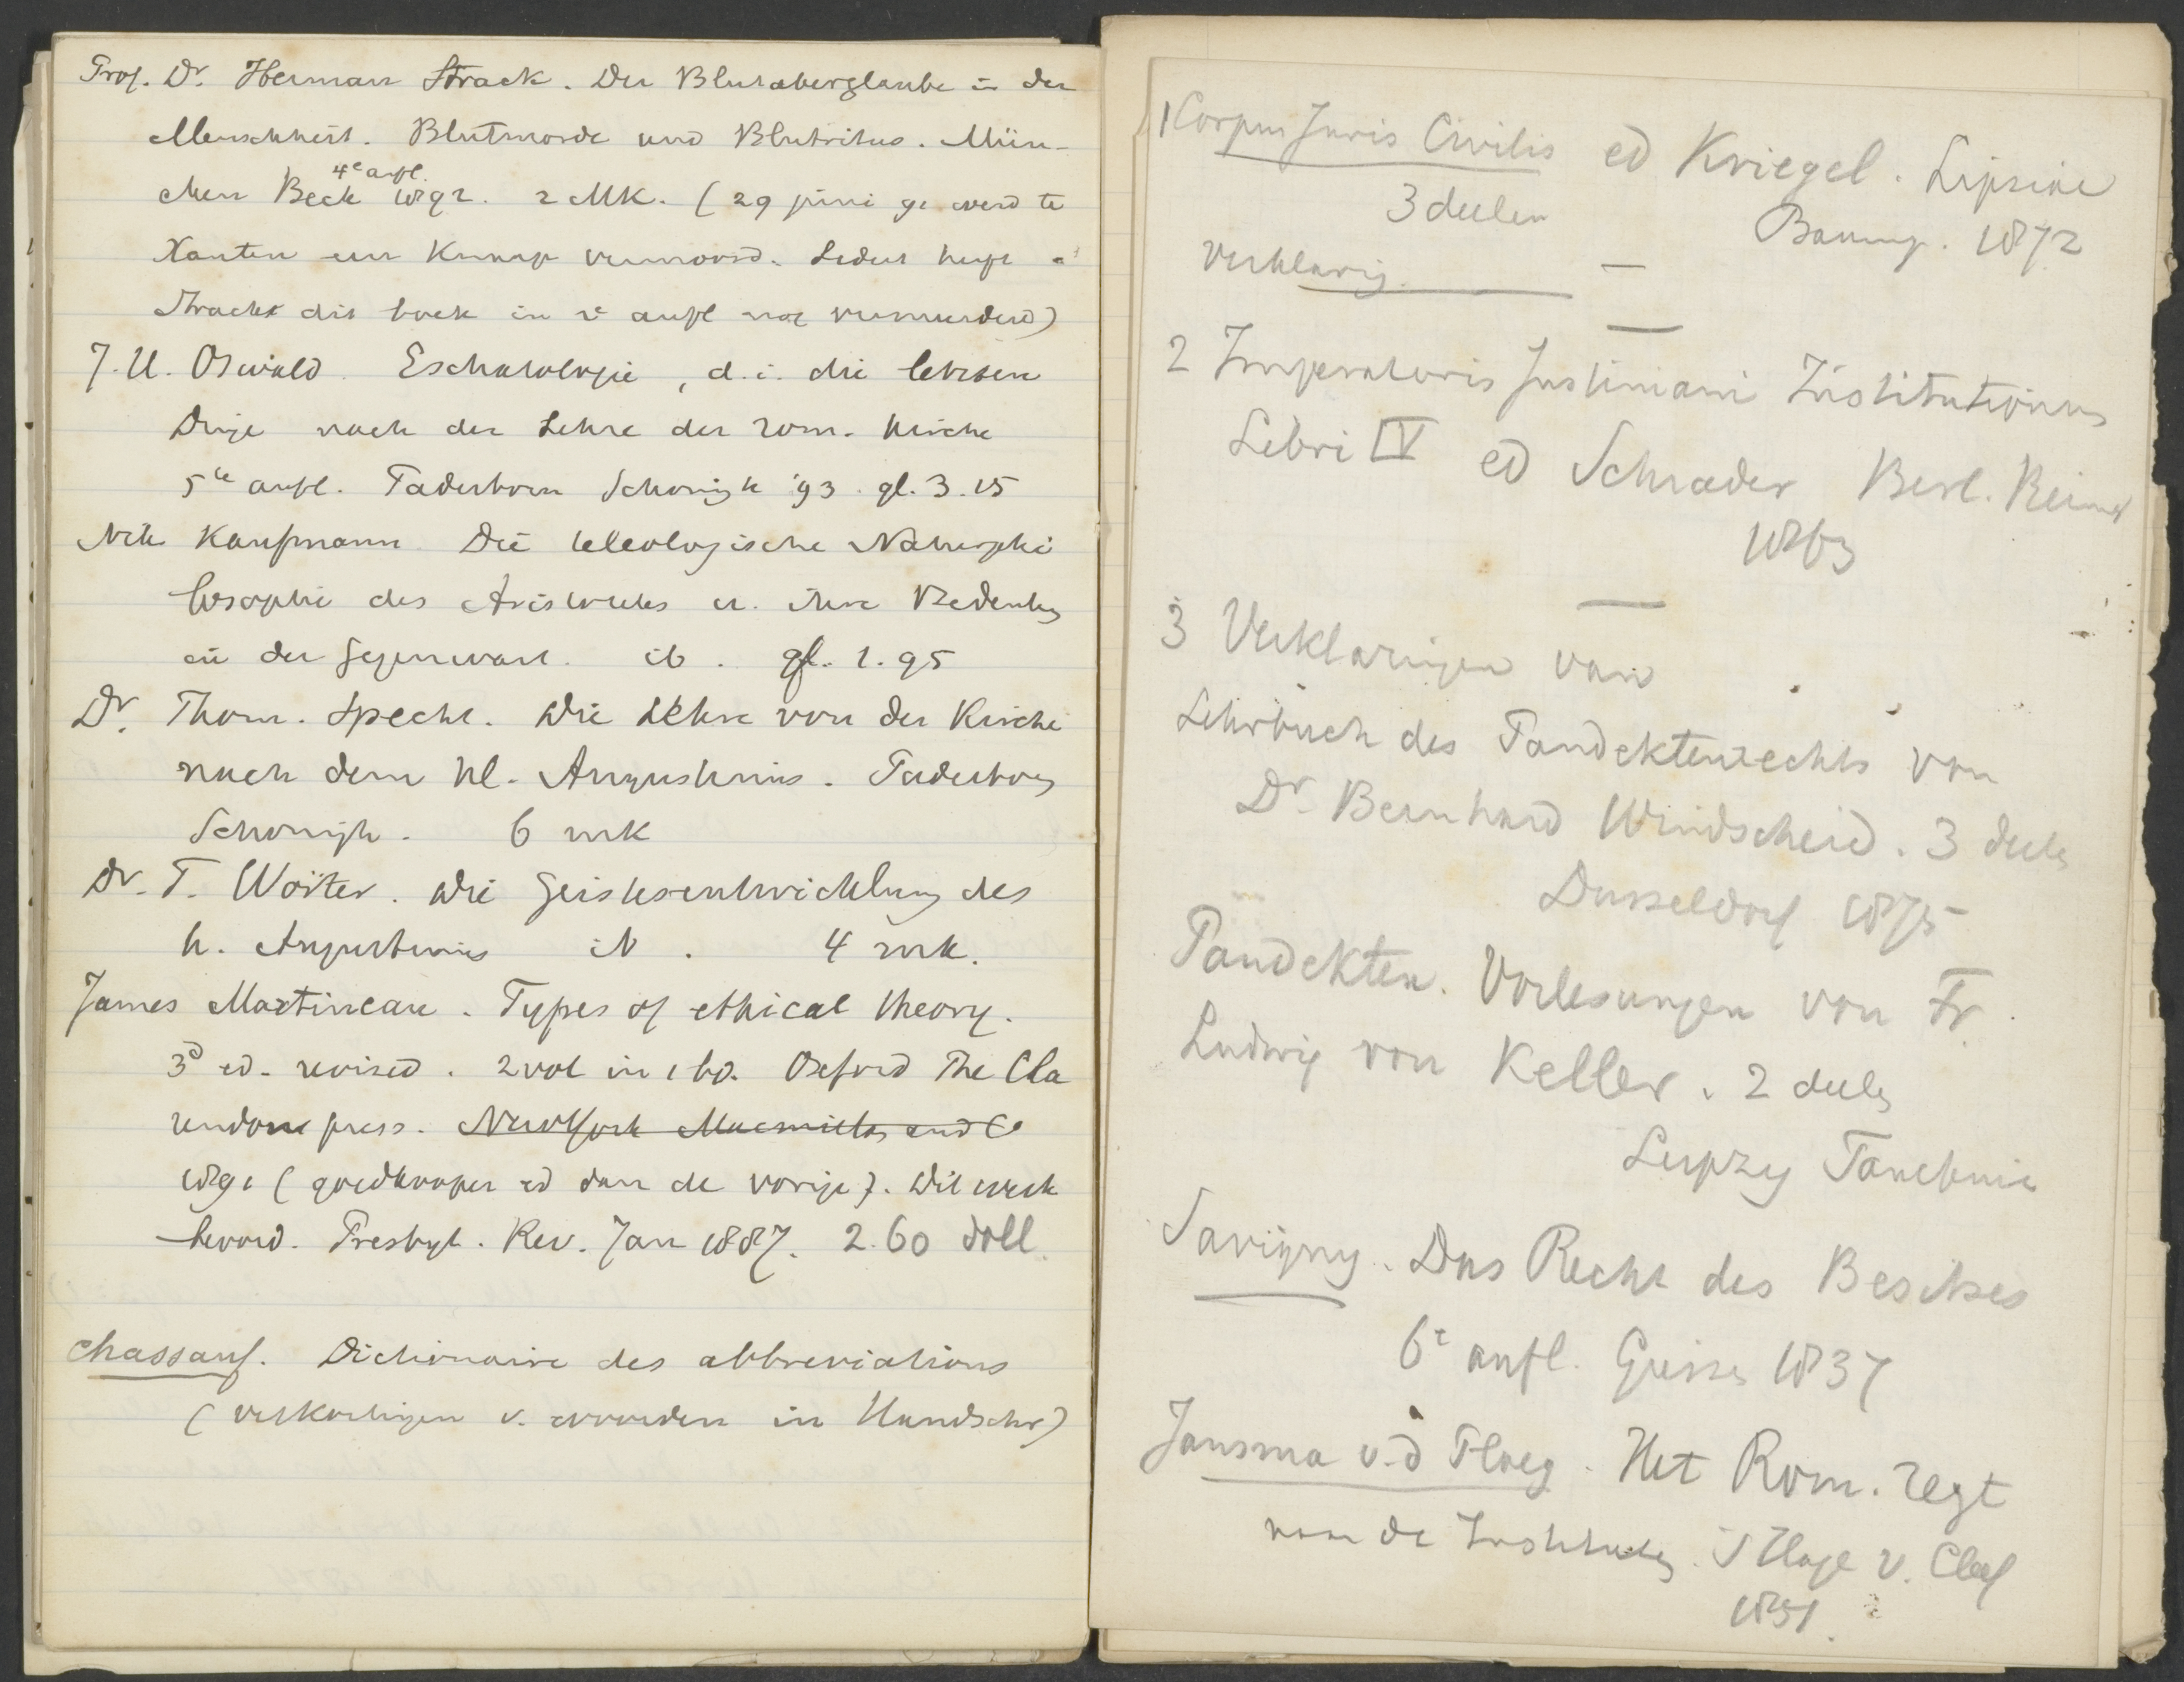 Prof. Dr. Herman Strack. Der Blutaberglaube in der
Menschheit. Blutmorde und Blutritus. Mün-
4e aufl.
chen Beck 1892. 2 MK. (29 juni 91 werd te
Xanten een knaap vermoord. Sedert heeft
Strack dit boek in 4e aufl. vermeerderd)
J. H. Oswald. Eschatologie, d.i. die letzten
Dinge nach der Lehre der rom. Kirche
5te aufl. Paderborn Schonigh '93. gl. 3.15
Nik Kaufmann Die teleologische Naturphi
losophie des Aristoteles u. ihre Bedeutung
in der Gegenwart. ib. gl. 1.95
Dr. Thom. Specht. Die Lehre von der Kirche
nach dem hl. Augustinus. Paderborn
Schonigh. 6 mk
Dr. F. Wörter. Die Geistesentwicklung des
h. Augustinus ib. 4 mk.
James Martineau. Types of ethical theory.
3d ed. revised. 2 vol in 1 bd. Oxford The Cla
rendon press. New York Macmillan and Co
1891 (goedkooper ed dan de vorige). Dit werk
beoord. Presbyt. Rev. Jan 1887. 2.60 doll.
Chassant. Dictionaire des abbreviations
(verkortingen v. woorden in Handschr)
1 Corpus Juris Civilis ed Kriegel. Lipsiae
3 deelen Baumg. 1872
verklaring
2 Imperatoris Justiniani Institutionum
Libri IV ed Schrader Berl. Reimer
1863
3 Verklaringen van
Lehrbuch des Pandektenrechts von
Dr. Bernhard Windscheid. 3 deelen
Dusseldorf 1875
Pandekten. Vorlesungen von Fr.
Ludwig von Keller. 2 deelen
Leipzig Tauchnitz
Savigny. Das Recht des Besitzes
6e aufl. Giessen 1837
Jansma v.d Ploeg. Het Rom. regt
van de Instituten. 's Hage v. Cleef
1851.